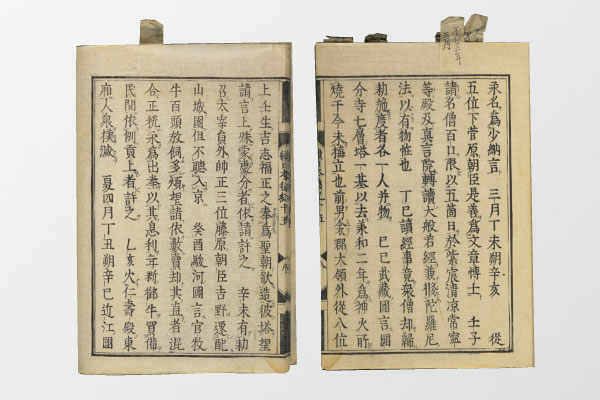 永名爲少納言 三月丁未朔辛亥 從
五位下菅原朝臣是善爲文章博士 壬子
請名僧百口限以五箇日於紫宸清凉常寧
等殿及真言院轉讀大般若經兼修陀羅尼
法以有物恠也 丁巳讀經事竟衆僧却歸
勅施度者各一人并物 己巳武藏國言國
分寺七層塔一基以去承和二年爲神火所
燒于今未構立也前男衾郡大領外從八位
續日本後紀十五
上壬生吉志福正之奉爲聖朝欲造彼塔望
請言上殊蒙處分者依請許之 辛未有勅
召太宰員外帥正三位藤原朝臣吉野還配
山城國但不聽入京 癸酉駿河國言官牧
牛百頭放飼多煩望請依數賣却其直者混
合正税永爲出擧以其息利年料御牛買備
民間依例貢上者許之 乙亥火仁壽殿東
廂人衆撲滅 夏四月丁丑朔辛巳近江國